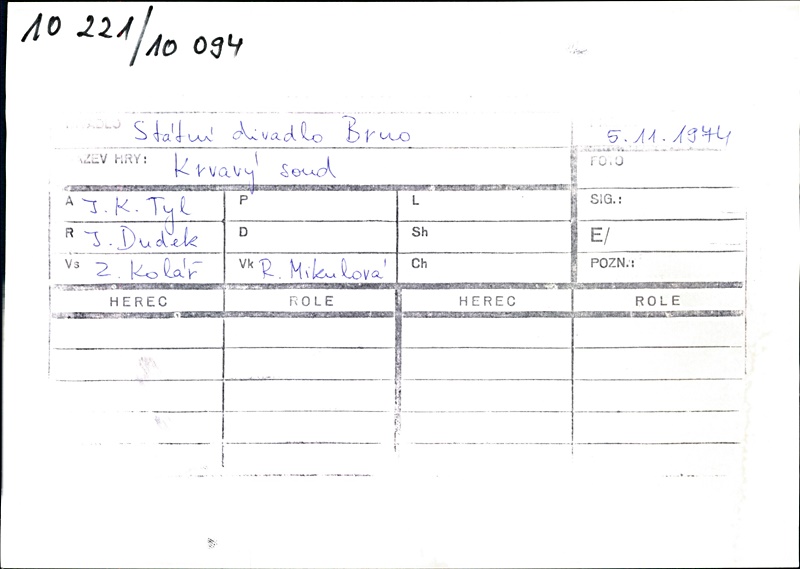 10 221/10 094
Státní divadlo Brno 5.11.1974
NÁZEV HRY: Krvavý soud FOTO
A J. K. Tyl P L SIG.:
R J. Dudek D Sh E/
Vs Z. Kolář Vk R. Mikulová Ch POZN.:
HEREC ROLE HEREC ROLE